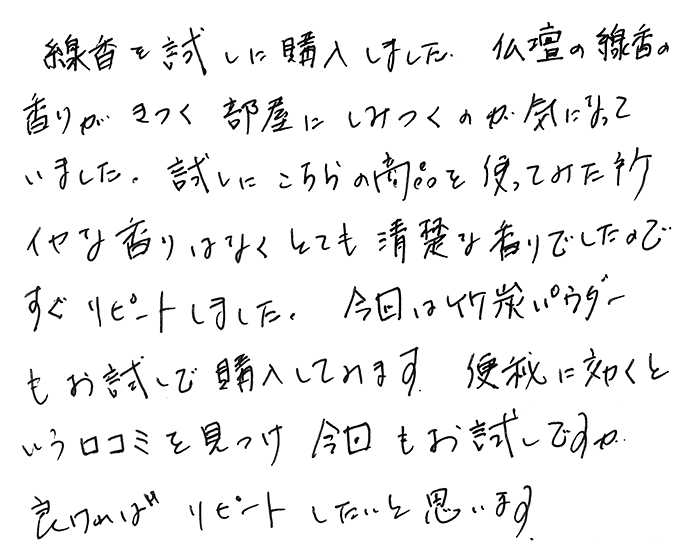 線香を試しに購入しました。仏壇の線香の
香りがきつく部屋にしみつくのが気になって
いました。試しにこちらの商品を使ってみた所
イヤな香りはなくとても清楚な香りでしたので
すぐリピートしました。今回は竹炭パウダー
もお試しで購入してみます。便秘に効くと
いう口コミを見つけ今回もお試しですが
良ければリピートしたいと思います。